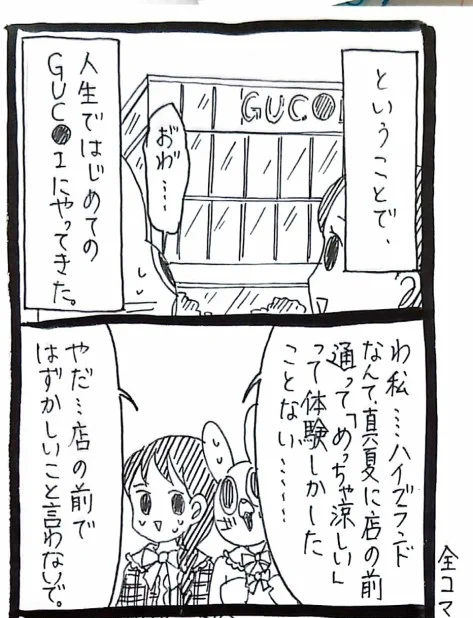 ということで、
GUC●I
おわ…
人生ではじめての
GUC●Iにやってきた。
わ私…ハイブランド
なんて、真夏に店の前
通って「めっちゃ涼しい」
って体験しかした
ことない……
やだ…店の前で
はずかしいこと言わないで。
全コマ